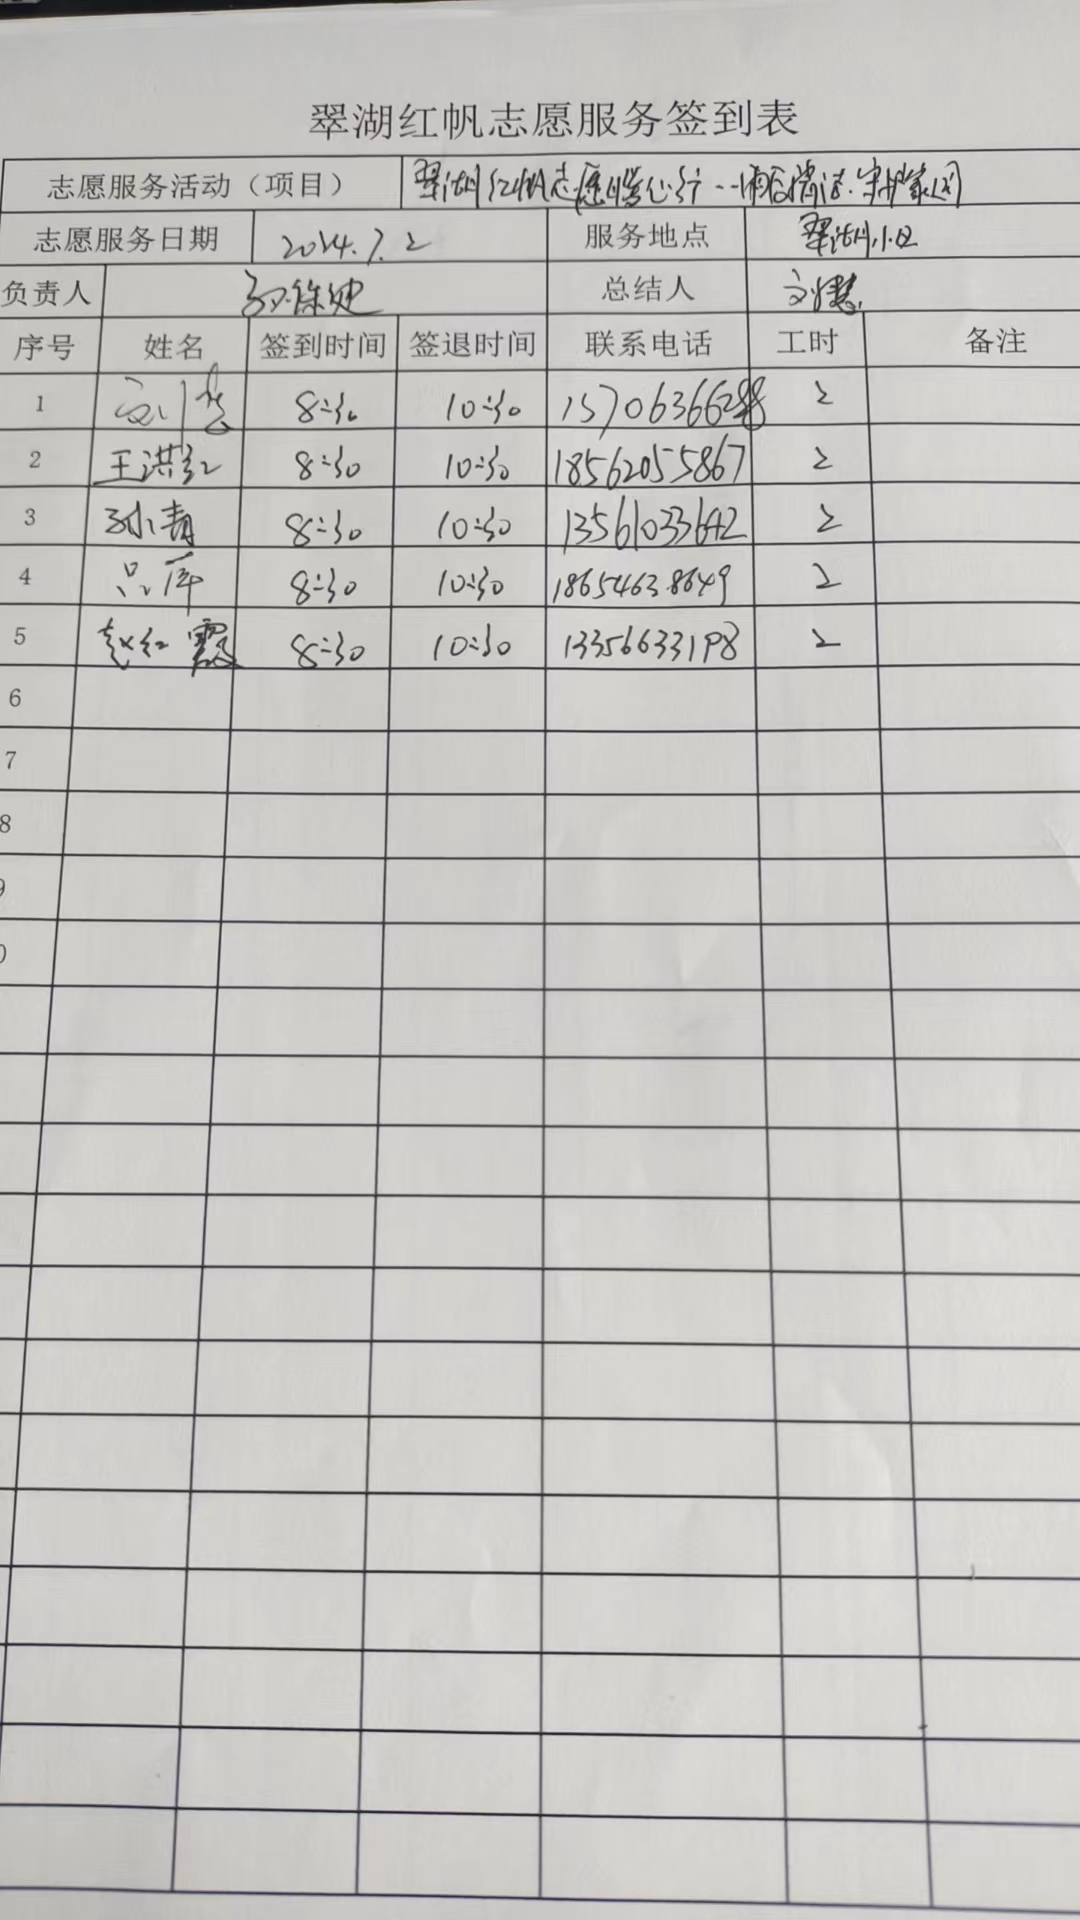 翠湖红帆志愿服务签到表
志愿服务活动（项目） 翠湖红帆志愿暖心行--雨后清洁.守护家园
志愿服务日期 2024.7.2 服务地点 翠湖小区
负责人 总结人 刘慧
序号 姓名 签到时间 签退时间 联系电话 工时 备注
1 刘慧 8:30 10:30 15706366288 2
2 王洪红 8:30 10:30 18562055867 2
3 孙青 8:30 10:30 13561033642 2
4 8:30 10:30 18654638649 2
5 赵红霞 8:30 10:30 13356633198 2
6
7
8
9
0